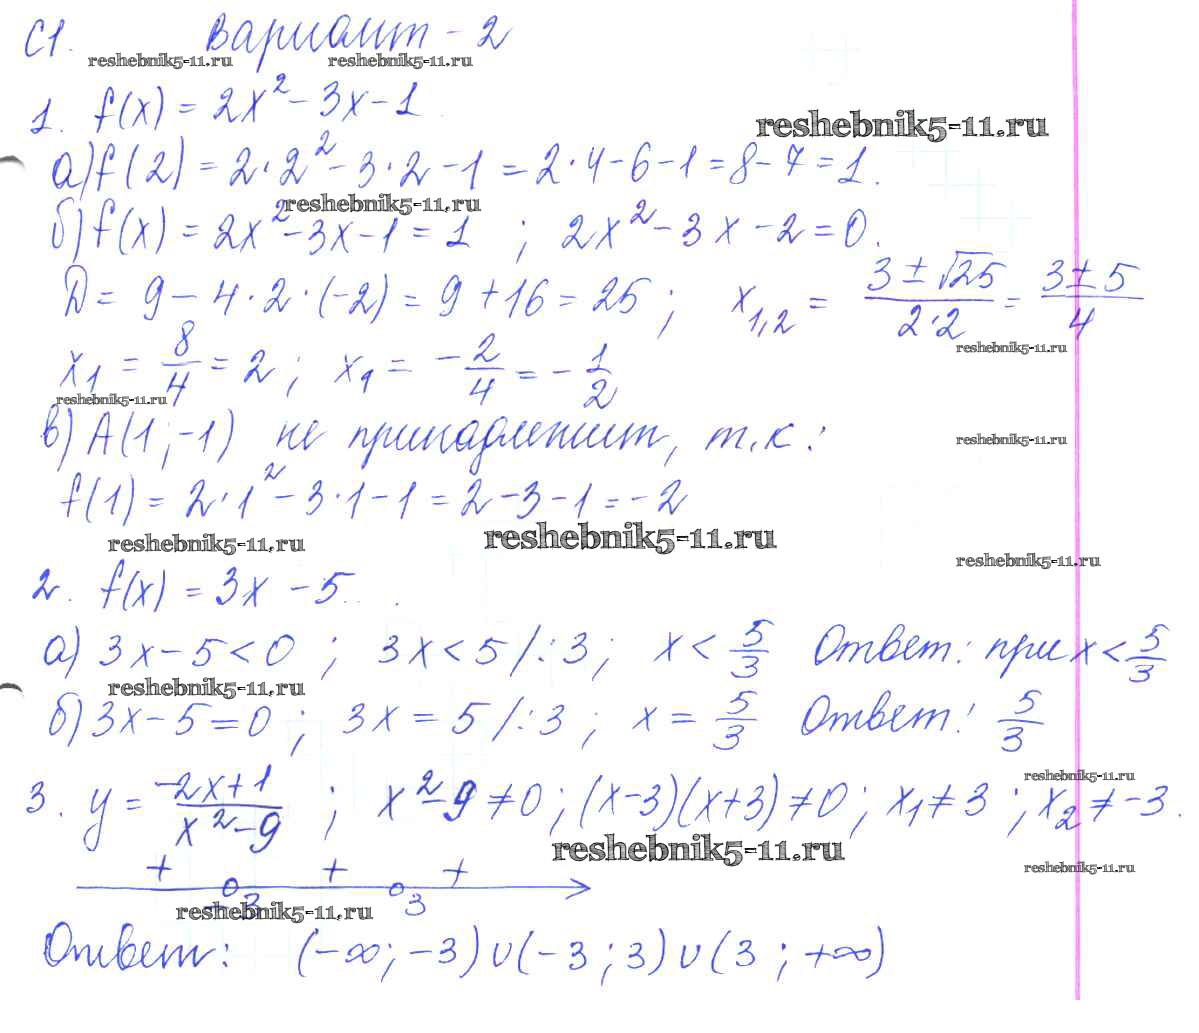 С1. Вариант - 2
reshebnik5-11.ru reshebnik5-11.ru
1. f(x) = 2x² - 3x - 1
reshebnik5-11.ru
а) f(2) = 2·2² - 3·2 - 1 = 2·4 - 6 - 1 = 8 - 7 = 1.
reshebnik5-11.ru
б) f(x) = 2x² - 3x - 1 = 1 ; 2x² - 3x - 2 = 0.
D = 9 - 4·2·(-2) = 9 + 16 = 25 ; x₁,₂ = (3 ± √25)/(2·2) = (3 ± 5)/4
reshebnik5-11.ru
x₁ = 8/4 = 2 ; x₁ = -2/4 = -1/2
reshebnik5-11.ru
в) А(1; -1) не принадлежит, т.к:
reshebnik5-11.ru
f(1) = 2·1² - 3·1 - 1 = 2 - 3 - 1 = -2
reshebnik5-11.ru reshebnik5-11.ru
reshebnik5-11.ru
2. f(x) = 3x - 5.
а) 3x - 5 < 0 ; 3x < 5 /:3 ; x < 5/3 Ответ: при x < 5/3
reshebnik5-11.ru
б) 3x - 5 = 0 ; 3x = 5 /:3 ; x = 5/3 Ответ: 5/3
reshebnik5-11.ru
3. y = (-2x+1)/(x²-9) ; x² - 9 ≠ 0 ; (x-3)(x+3) ≠ 0 ; x₁ ≠ 3 ; x₂ ≠ -3.
reshebnik5-11.ru
+ + +
reshebnik5-11.ru
-3 3
reshebnik5-11.ru
Ответ: (-∞; -3) ∪ (-3 ; 3) ∪ (3 ; +∞)